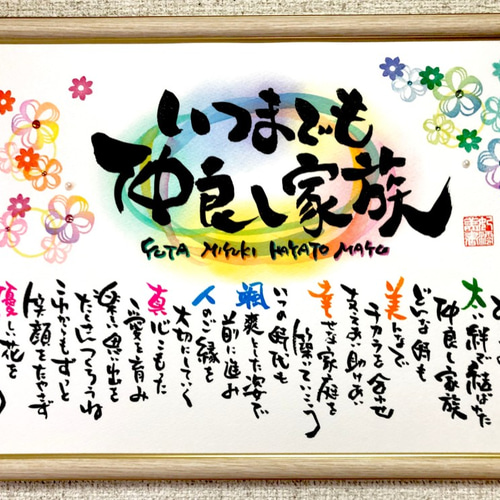 いつまでも
仲良し家族
YUTA MIYUKI HAYATO MAYU
太い絆で結ばれた
仲良し家族
どんな時も
美んなで
チカラを合せ
支えあい助けあい
幸せな家庭を
築いていこう
いつの時代も
颯爽とした姿で
前に進み
人のご縁を
大切にしていく
真心こもった
愛を育み
楽しい思い出を
たくさんつくろうね
これからもずっと
笑顔をたやさず
優しい花を